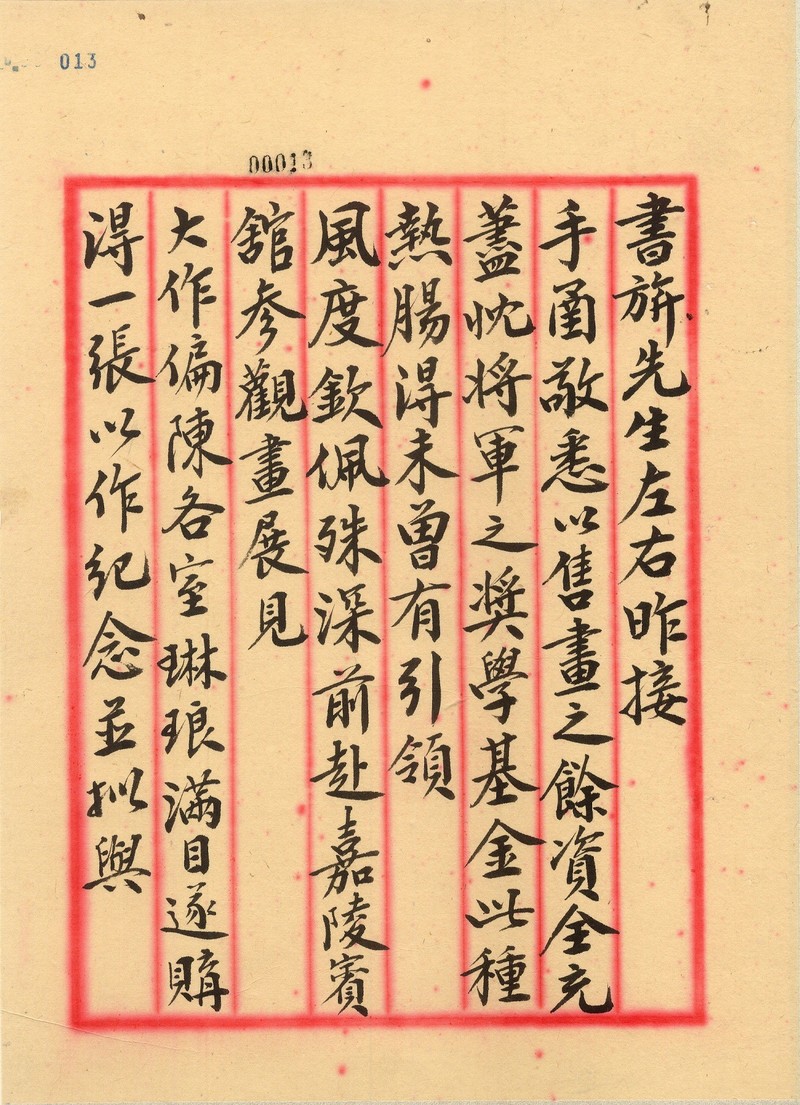 013
00013
書旂先生左右昨接
手圅敬悉以售畫之餘資全充
蓋忱將軍之奬學基金此種
熱腸得未曾有引領
風度欽佩殊深前赴嘉陵賓
舘參觀畫展見
大作偏陳各室琳琅滿目遂購
得一張以作紀念並拟與